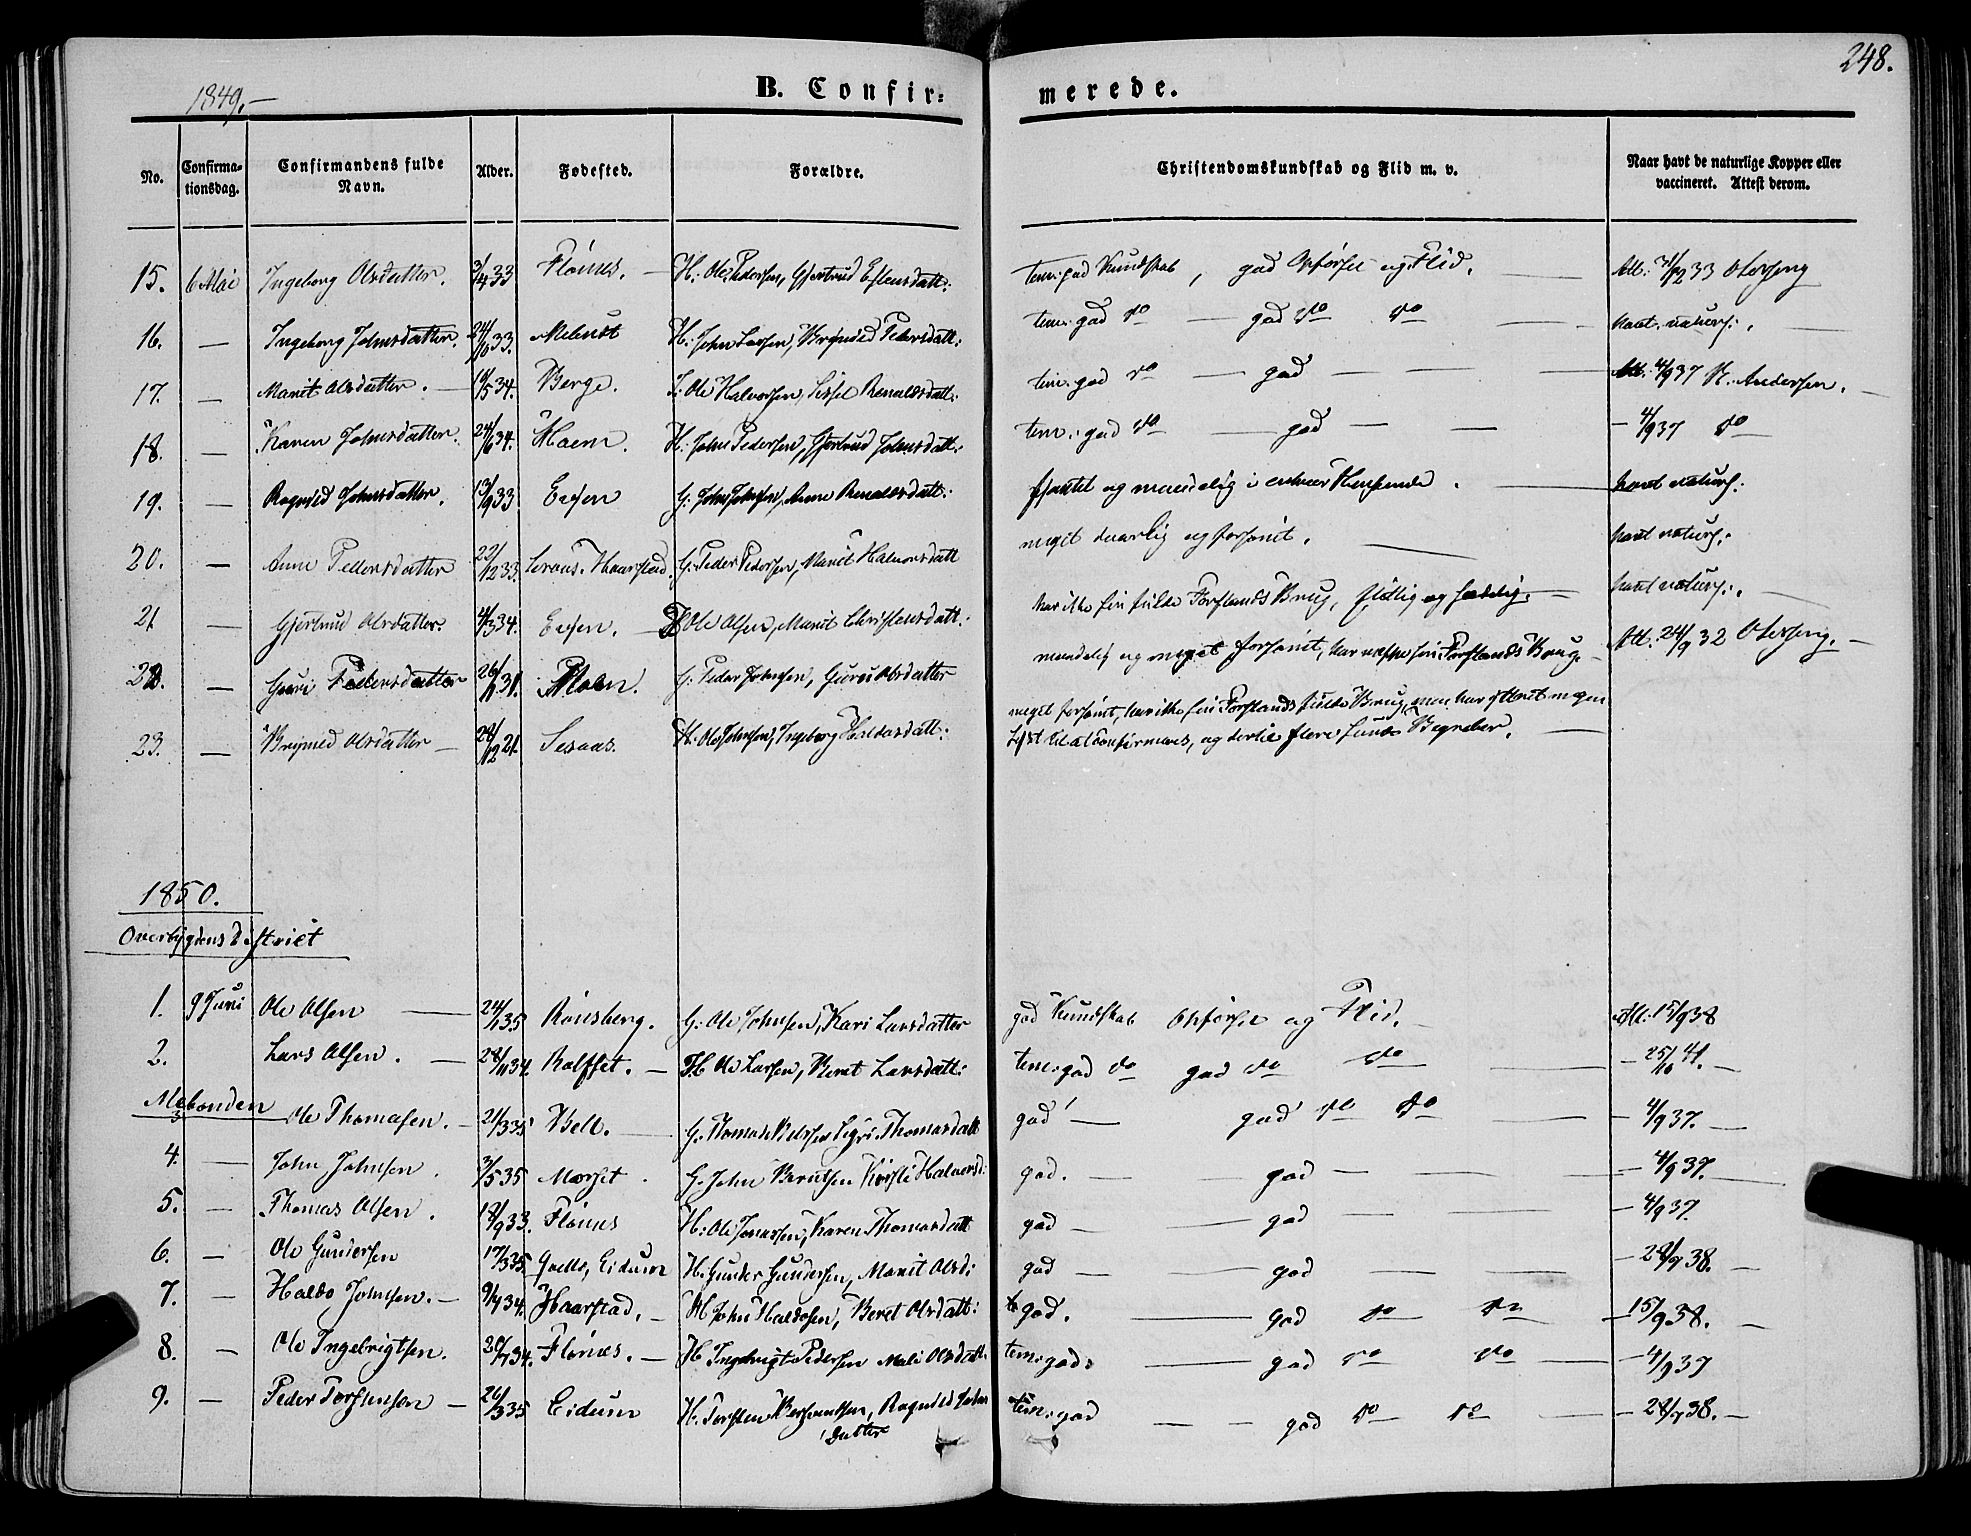 248.
1849.–
B. Confir-
merede.
No.
Confirma-
tionsdag.
Confirmandens fulde
Navn.
Alder.
Fødested.
Forældre.
Christendomskundskab og Flid m. v.
Naar havt de naturlige Kopper eller
vaccineret. Attest derom.
15. 6 Mai Ingeborg Olsdatter. 3/4 33 Flönes. – H: Ole Pedersen, Gjertrud Estensdatt: tem: god Kundskab, god Opförsel og Flid. Att: 31/12 33
16. – Ingeborg Johnsdatter. 24/10 33. H: John Larsen, Brynild Pedersdatt: tem: god do – god do do – havt naturl:.
17. – Marit Olsdatter. – 5 34. Berge. Ole Halvorsen, Sissel Arnoldsdatt: tem: god do – god – – – Att: 4/9 37 N. Andersen.
18. – Karen Johnsdatter. 24/6 34. Moen. H: John Pedersen, Gjertrud Johnsdatt: tem: god do – god – – – 4/9 37 do
19. – Ragnild Johnsdatter. 13/9 33 G: John Johnsen, Anne Arnoldsdatt: og maadelig i enhver Henseende. – havt naturl:
20. – Anne Pedersdatter 22/12 33. Haarstad G: Peder Pedersen, Marit Halvorsdatt meget daarlig og forsömt. – havt naturl:
21 – Gjertrud Olsdatter. 4/3 34. Ole Olsen, Marit Christensdatt: har ikke sin fulde Forstands Brug, flittig og sædelig. – havt naturl:.
22. – Guri Pedersdatter 26/11 31. Moen. G: Peder Johnsen, Guru Olsdatter maadelig og meget forsömt, har neppe sin Forstands Brug. Att: 24/9 32
23. – Brynild Olsdatter – 28/12 21. Selaas. H: Ole Johnsen, Ingeborg Haldosdatt: meget forsömt, har ikke sin Forstands fulde Brug, men har yttret megen
Lyst til at Confirmeres, og dertil flere sunde Begreber. –
1850.
Overbygdens District
1. 9 Juni Ole Olsen – 24/1 35 Rönsberg. G: Ole Johnsen, Kari Larsdatter god Kundskab Opförsel og Flid. – Att: 15/9 38
2. Lars Olsen. – 28/11 34. Rolfset. – H Ole Larsen, Beret Larsdatt: tem: god do god do do – – 25/10 41. –
Mebonden
3 Ole Thomasen. – 21/3 35 Bell. – G. Thomas Sigri Thomasdatt god – god do do – – 4/9 37. –
4. – John Johnsen. 3/5 35 Morset. G. John Berntsen Kirsti Halvorsd: god. – god – – – – 4/9 37. –
5. – Thomas Olsen. 18/9 33. Flönes H: Ole Jonassen, Karen Thomasdatt god – – god – – – – 4/9 37.
6. – Ole Gundersen 17/3 35. Eidum H: Gunder Gundersen, Marit Olsd: god – – god – – – – 28/9 38. –
7. – Haldo Johnsen. – 9/7 34. Haarstad. – H John Haldosen, Beret Olsdatt: god. – god do do – 15/9 38. –
8. – Ole Ingebrigtsen. 20/7 34. Flönes. – H Ingebrigt Pedersen Mali Olsdatt: tem: god – god do do – – 4/9 37
9. – Peder Torstensen – 26/3 35 Eidum H: Torsten Bersvendsen, Ragnild Johns
datter tem: god – – god do do – – 28/9 38. –